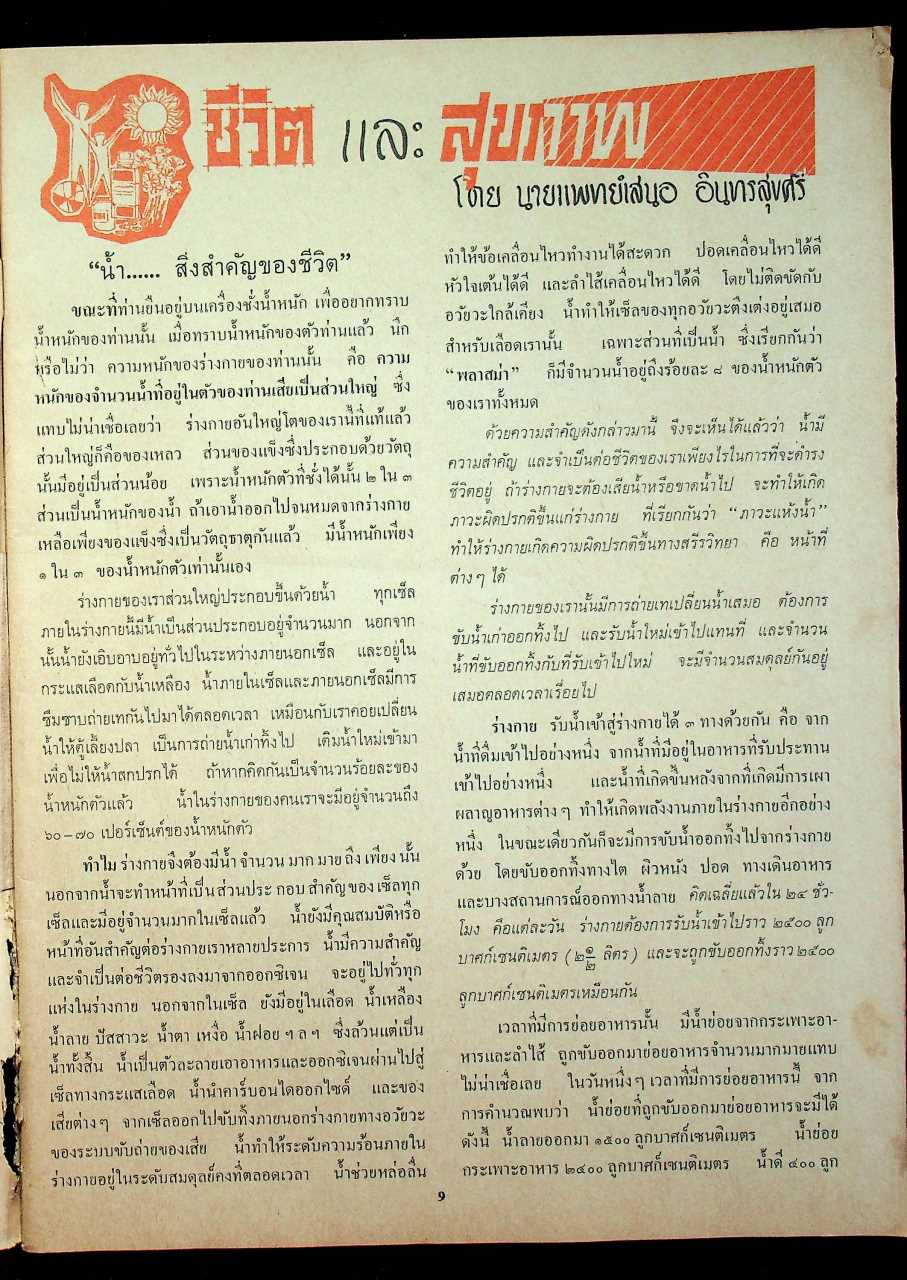 ชีวิต และ สุขภาพ
โดย นายแพทย์เสนอ อินทรสุขศรี
“น้ำ...... สิ่งสำคัญของชีวิต”
ขณะที่ท่านยืนอยู่บนเครื่องชั่งน้ำหนัก เพื่ออยากทราบ
น้ำหนักของท่านนั้น เมื่อทราบน้ำหนักของตัวท่านแล้ว นึก
หรือไม่ว่า ความหนักของร่างกายของท่านนั้น คือ ความ
หนักของจำนวนน้ำที่อยู่ในตัวของท่านเสียเป็นส่วนใหญ่ ซึ่ง
แทบไม่น่าเชื่อเลยว่า ร่างกายอันใหญ่โตของเรานี้ที่แท้แล้ว
ส่วนใหญ่ก็คือของเหลว ส่วนของแข็งซึ่งประกอบด้วยวัตถุ
นั้นมีอยู่เป็นส่วนน้อย เพราะน้ำหนักตัวที่ชั่งได้นั้น ๒ ใน ๓
ส่วนเป็นน้ำหนักของน้ำ ถ้าเอาน้ำออกไปจนหมดจากร่างกาย
เหลือเพียงของแข็งซึ่งเป็นวัตถุธาตุกันแล้ว มีน้ำหนักเพียง
๑ ใน ๓ ของน้ำหนักตัวเท่านั้นเอง
ร่างกายของเราส่วนใหญ่ประกอบขึ้นด้วยน้ำ ทุกเซ็ล
ภายในร่างกายนี้มีน้ำเป็นส่วนประกอบอยู่จำนวนมาก นอกจาก
นั้นน้ำยังเอิบอาบอยู่ทั่วไปในระหว่างภายนอกเซ็ล และอยู่ใน
กระแสเลือดกับน้ำเหลือง น้ำภายในเซ็ลและภายนอกเซ็ลมีการ
ซึมซาบถ่ายเทกันไปมาได้ตลอดเวลา เหมือนกับเราคอยเปลี่ยน
น้ำให้ตู้เลี้ยงปลา เป็นการถ่ายน้ำเก่าทิ้งไป เติมน้ำใหม่เข้ามา
เพื่อไม่ให้น้ำสกปรกได้ ถ้าหากคิดกันเป็นจำนวนร้อยละของ
น้ำหนักตัวแล้ว น้ำในร่างกายของคนเราจะมีอยู่จำนวนถึง
๖๐–๗๐ เปอร์เซ็นต์ของน้ำหนักตัว
ทำไม ร่างกายจึงต้องมีน้ำ จำนวน มาก มาย ถึง เพียง นั้น
นอกจากน้ำจะทำหน้าที่เป็น ส่วนประ กอบ สำคัญ ของ เซ็ลทุก
เซ็ลและมีอยู่จำนวนมากในเซ็ลแล้ว น้ำยังมีคุณสมบัติหรือ
หน้าที่อันสำคัญต่อร่างกายเราหลายประการ น้ำมีความสำคัญ
และจำเป็นต่อชีวิตรองลงมาจากออกซิเจน จะอยู่ไปทั่วทุก
แห่งในร่างกาย นอกจากในเซ็ล ยังมีอยู่ในเลือด น้ำเหลือง
น้ำลาย ปัสสาวะ น้ำตา เหงื่อ น้ำฝอย ฯ ล ฯ ซึ่งล้วนแต่เป็น
น้ำทั้งสิ้น น้ำเป็นตัวละลายเอาอาหารและออกซิเจนผ่านไปสู่
เซ็ลทางกระแสเลือด น้ำนำคาร์บอนไดออกไซด์ และของ
เสียต่างๆ จากเซ็ลออกไปขับทิ้งภายนอกร่างกายทางอวัยวะ
ของระบบขับถ่ายของเสีย น้ำทำให้ระดับความร้อนภายใน
ร่างกายอยู่ในระดับสมดุลย์คงที่ตลอดเวลา น้ำช่วยหล่อลื่น
ทำให้ข้อเคลื่อนไหวทำงานได้สะดวก ปอดเคลื่อนไหวได้ดี
หัวใจเต้นได้ดี และลำไส้เคลื่อนไหวได้ดี โดยไม่ติดขัดกับ
อวัยวะใกล้เคียง น้ำทำให้เซ็ลของทุกอวัยวะตึงเต่งอยู่เสมอ
สำหรับเลือดเรานั้น เฉพาะส่วนที่เป็นน้ำ ซึ่งเรียกกันว่า
“พลาสม่า” ก็มีจำนวนน้ำอยู่ถึงร้อยละ ๘ ของน้ำหนักตัว
ของเราทั้งหมด
ด้วยความสำคัญดังกล่าวมานี้ จึงจะเห็นได้แล้วว่า น้ำมี
ความสำคัญ และจำเป็นต่อชีวิตของเราเพียงไรในการที่จะดำรง
ชีวิตอยู่ ถ้าร่างกายจะต้องเสียน้ำหรือขาดน้ำไป จะทำให้เกิด
ภาวะผิดปรกติขึ้นแก่ร่างกาย ที่เรียกกันว่า “ภาวะแห้งน้ำ”
ทำให้ร่างกายเกิดความผิดปรกติขึ้นทางสรีรวิทยา คือ หน้าที่
ต่างๆ ได้
ร่างกายของเรานั้นมีการถ่ายเทเปลี่ยนน้ำเสมอ ต้องการ
ขับน้ำเก่าออกทิ้งไป และรับน้ำใหม่เข้าไปแทนที่ และจำนวน
น้ำที่ขับออกทิ้งกับที่รับเข้าไปใหม่ จะมีจำนวนสมดุลย์กันอยู่
เสมอตลอดเวลาเรื่อยไป
ร่างกาย รับน้ำเข้าสู่ร่างกายได้ ๓ ทางด้วยกัน คือ จาก
น้ำที่ดื่มเข้าไปอย่างหนึ่ง จากน้ำที่มีอยู่ในอาหารที่รับประทาน
เข้าไปอย่างหนึ่ง และน้ำที่เกิดขึ้นหลังจากที่เกิดมีการเผา
ผลาญอาหารต่างๆ ทำให้เกิดพลังงานภายในร่างกายอีกอย่าง
หนึ่ง ในขณะเดียวกันก็จะมีการขับน้ำออกทิ้งไปจากร่างกาย
ด้วย โดยขับออกทิ้งทางไต ผิวหนัง ปอด ทางเดินอาหาร
และบางสถานการณ์ออกทางน้ำลาย คิดเฉลี่ยแล้วใน ๒๔ ชั่ว-
โมง คือแต่ละวัน ร่างกายต้องการรับน้ำเข้าไปราว ๒๕๐๐ ลูก
บาศก์เซนติเมตร (๒๑/๒ ลิตร) และจะถูกขับออกทิ้งราว ๒๕๐๐
ลูกบาศก์เซนติเมตรเหมือนกัน
เวลาที่มีการย่อยอาหารนั้น มีน้ำย่อยจากกระเพาะอา-
หารและลำไส้ ถูกขับออกมาย่อยอาหารจำนวนมากมายแทบ
ไม่น่าเชื่อเลย ในวันหนึ่งๆ เวลาที่มีการย่อยอาหารนี้ จาก
การคำนวณพบว่า น้ำย่อยที่ถูกขับออกมาย่อยอาหารจะมีได้
ดังนี้ น้ำลายออกมา ๑๕๐๐ ลูกบาศก์เซนติเมตร น้ำย่อย
กระเพาะอาหาร ๒๔๐๐ ลูกบาศก์เซนติเมตร น้ำดี ๔๐๐ ลูก
9